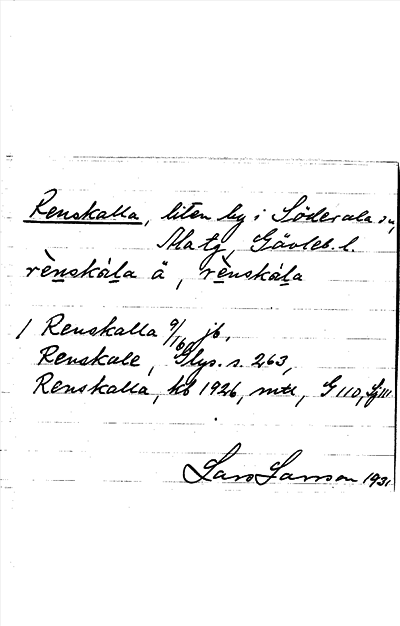 Renskalla, liten by i Söderala sn,
Ala tg, Gävleb. l.
rènskàla ä, rènskàla
/ Renskalla jb,
Renskale, Glys. s. 263,
Renskalla, kb 1926, mtl, G 110,
Lars Larsson 1931